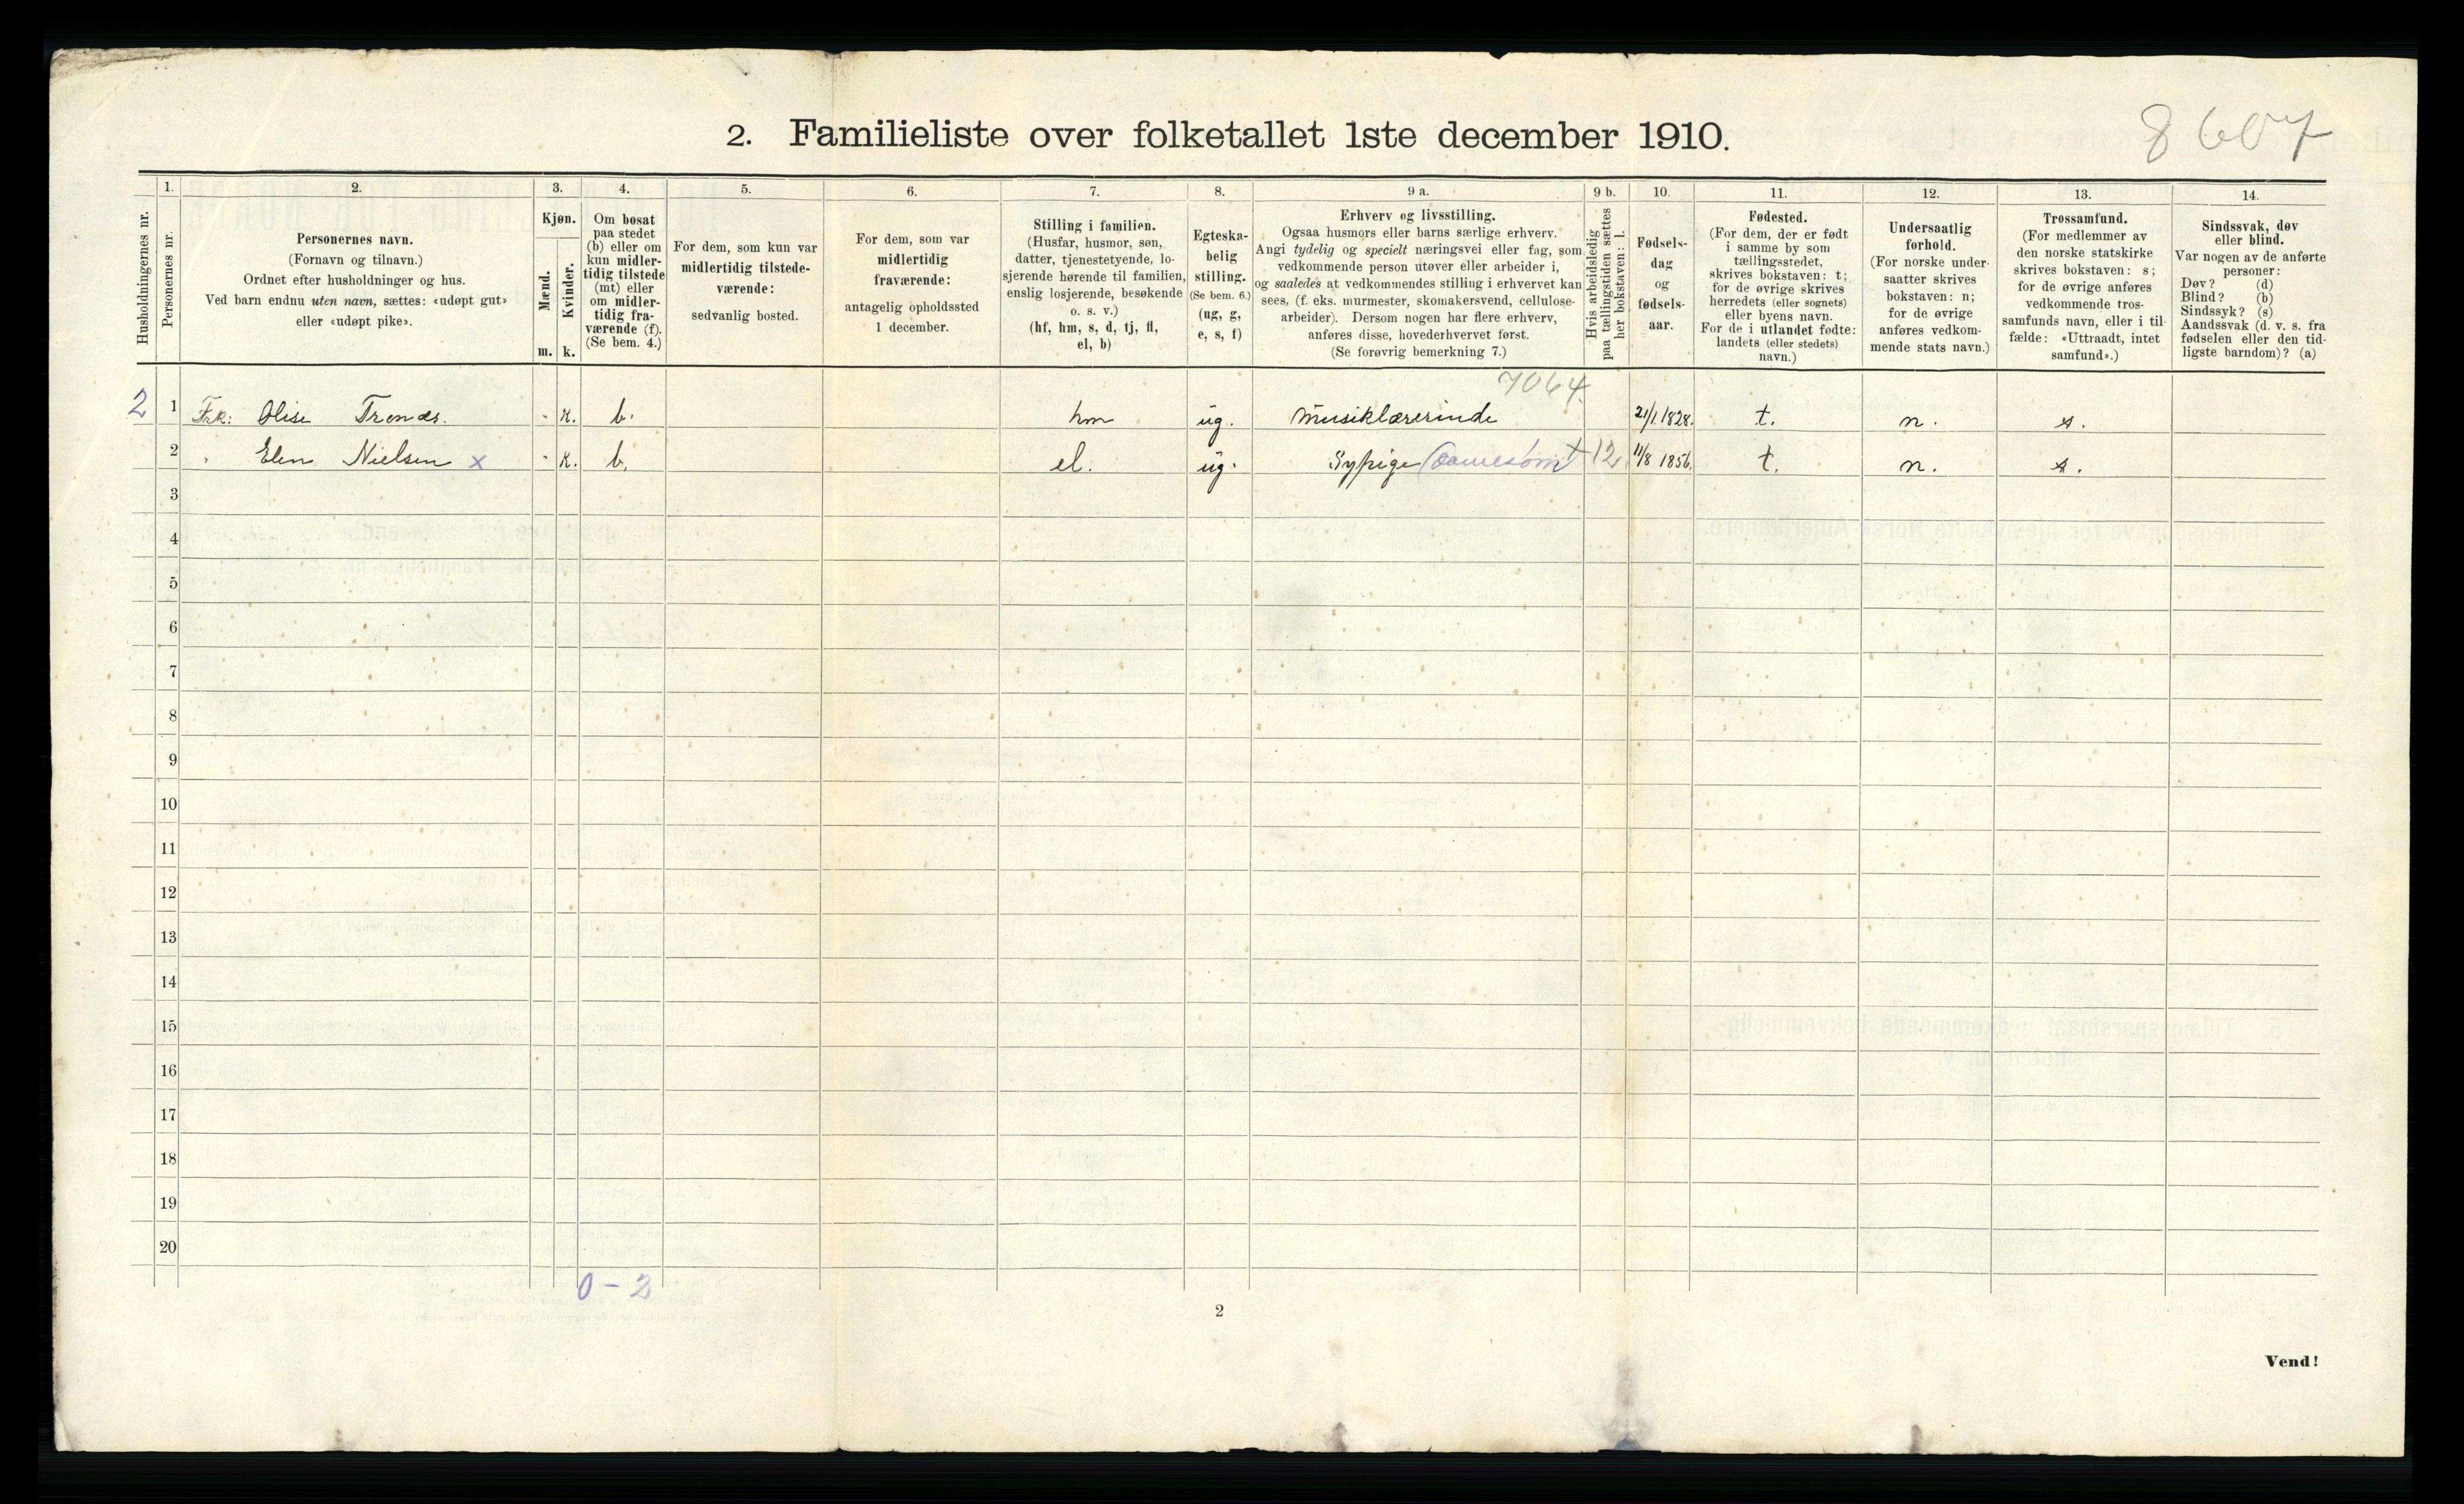 8607
2. Familieliste over folketallet 1ste december 1910.
Husholdningernes nr.
1.
Personernes nr.
2.
Personernes navn.
(Fornavn og tilnavn.)
Ordnet efter husholdninger og hus.
Ved barn endnu uten navn, sættes: «udøpt gut»
eller «udøpt pike».
3.
Kjøn.
Mænd.
m.
Kvinder.
k.
4.
Om bosat
paa stedet
(b) eller om
kun midler-
tidig tilstede
(mt) eller
om midler-
tidig fra-
værende (f).
(Se bem. 4.)
5.
For dem, som kun var
midlertidig tilstede-
værende:
sedvanlig bosted.
6.
For dem, som var
midlertidig
fraværende:
antagelig opholdssted
1 december.
7.
Stilling i familien.
(Husfar, husmor, søn,
datter, tjenestetyende, lo-
sjerende hørende til familien,
enslig losjerende, besøkende
o. s. v.)
(hf, hm, s, d, tj, fl,
el, b)
8.
Egteska-
belig
stilling.
(Se bem. 6.)
(ug, g,
e, s, f)
9 a.
Erhverv og livsstilling.
Ogsaa husmors eller barns særlige erhverv.
Angi tydelig og specielt næringsvei eller fag, som
vedkommende person utøver eller arbeider i,
og saaledes at vedkommendes stilling i erhvervet kan
sees, (f. eks. murmester, skomakersvend, cellulose-
arbeider). Dersom nogen har flere erhverv,
anføres disse, hovederhvervet først.
(Se forøvrig bemerkning 7.)
9 b.
Hvis arbeidsledig
paa tællingstiden sættes
her bokstaven: l.
10.
Fødsels-
dag
og
fødsels-
aar.
11.
Fødested.
(For dem, der er født
i samme by som
tællingsstedet,
skrives bokstaven: t;
for de øvrige skrives
herredets (eller sognets)
eller byens navn.
For de i utlandet fødte:
landets (eller stedets)
navn.)
12.
Undersaatlig
forhold.
(For norske under-
saatter skrives
bokstaven: n;
for de øvrige
anføres vedkom-
mende stats navn.)
13.
Trossamfund.
(For medlemmer av
den norske statskirke
skrives bokstaven: s;
for de øvrige anføres
vedkommende tros-
samfunds navn, eller i til-
fælde: «Uttraadt, intet
samfund».)
14.
Sindssvak, døv
eller blind.
Var nogen av de anførte
personer:
Døv? (d)
Blind? (b)
Sindssyk? (s)
Aandssvak (d. v. s. fra
fødselen eller den tid-
ligste barndom)? (a)
7064.
2 1 Frk: Olise - K. b. hm ug. Musiklærerinde 21/1 1828. t. n. s.
2 " Elen Nielsen x - K. b. el. ug. Sypige (Damesøm + 12 11/8 1856. t. n. s.
3
4
5
6
7
8
9
10
11
12
13
14
15
16
17
18
19
20
0 - 2
2
Vend!